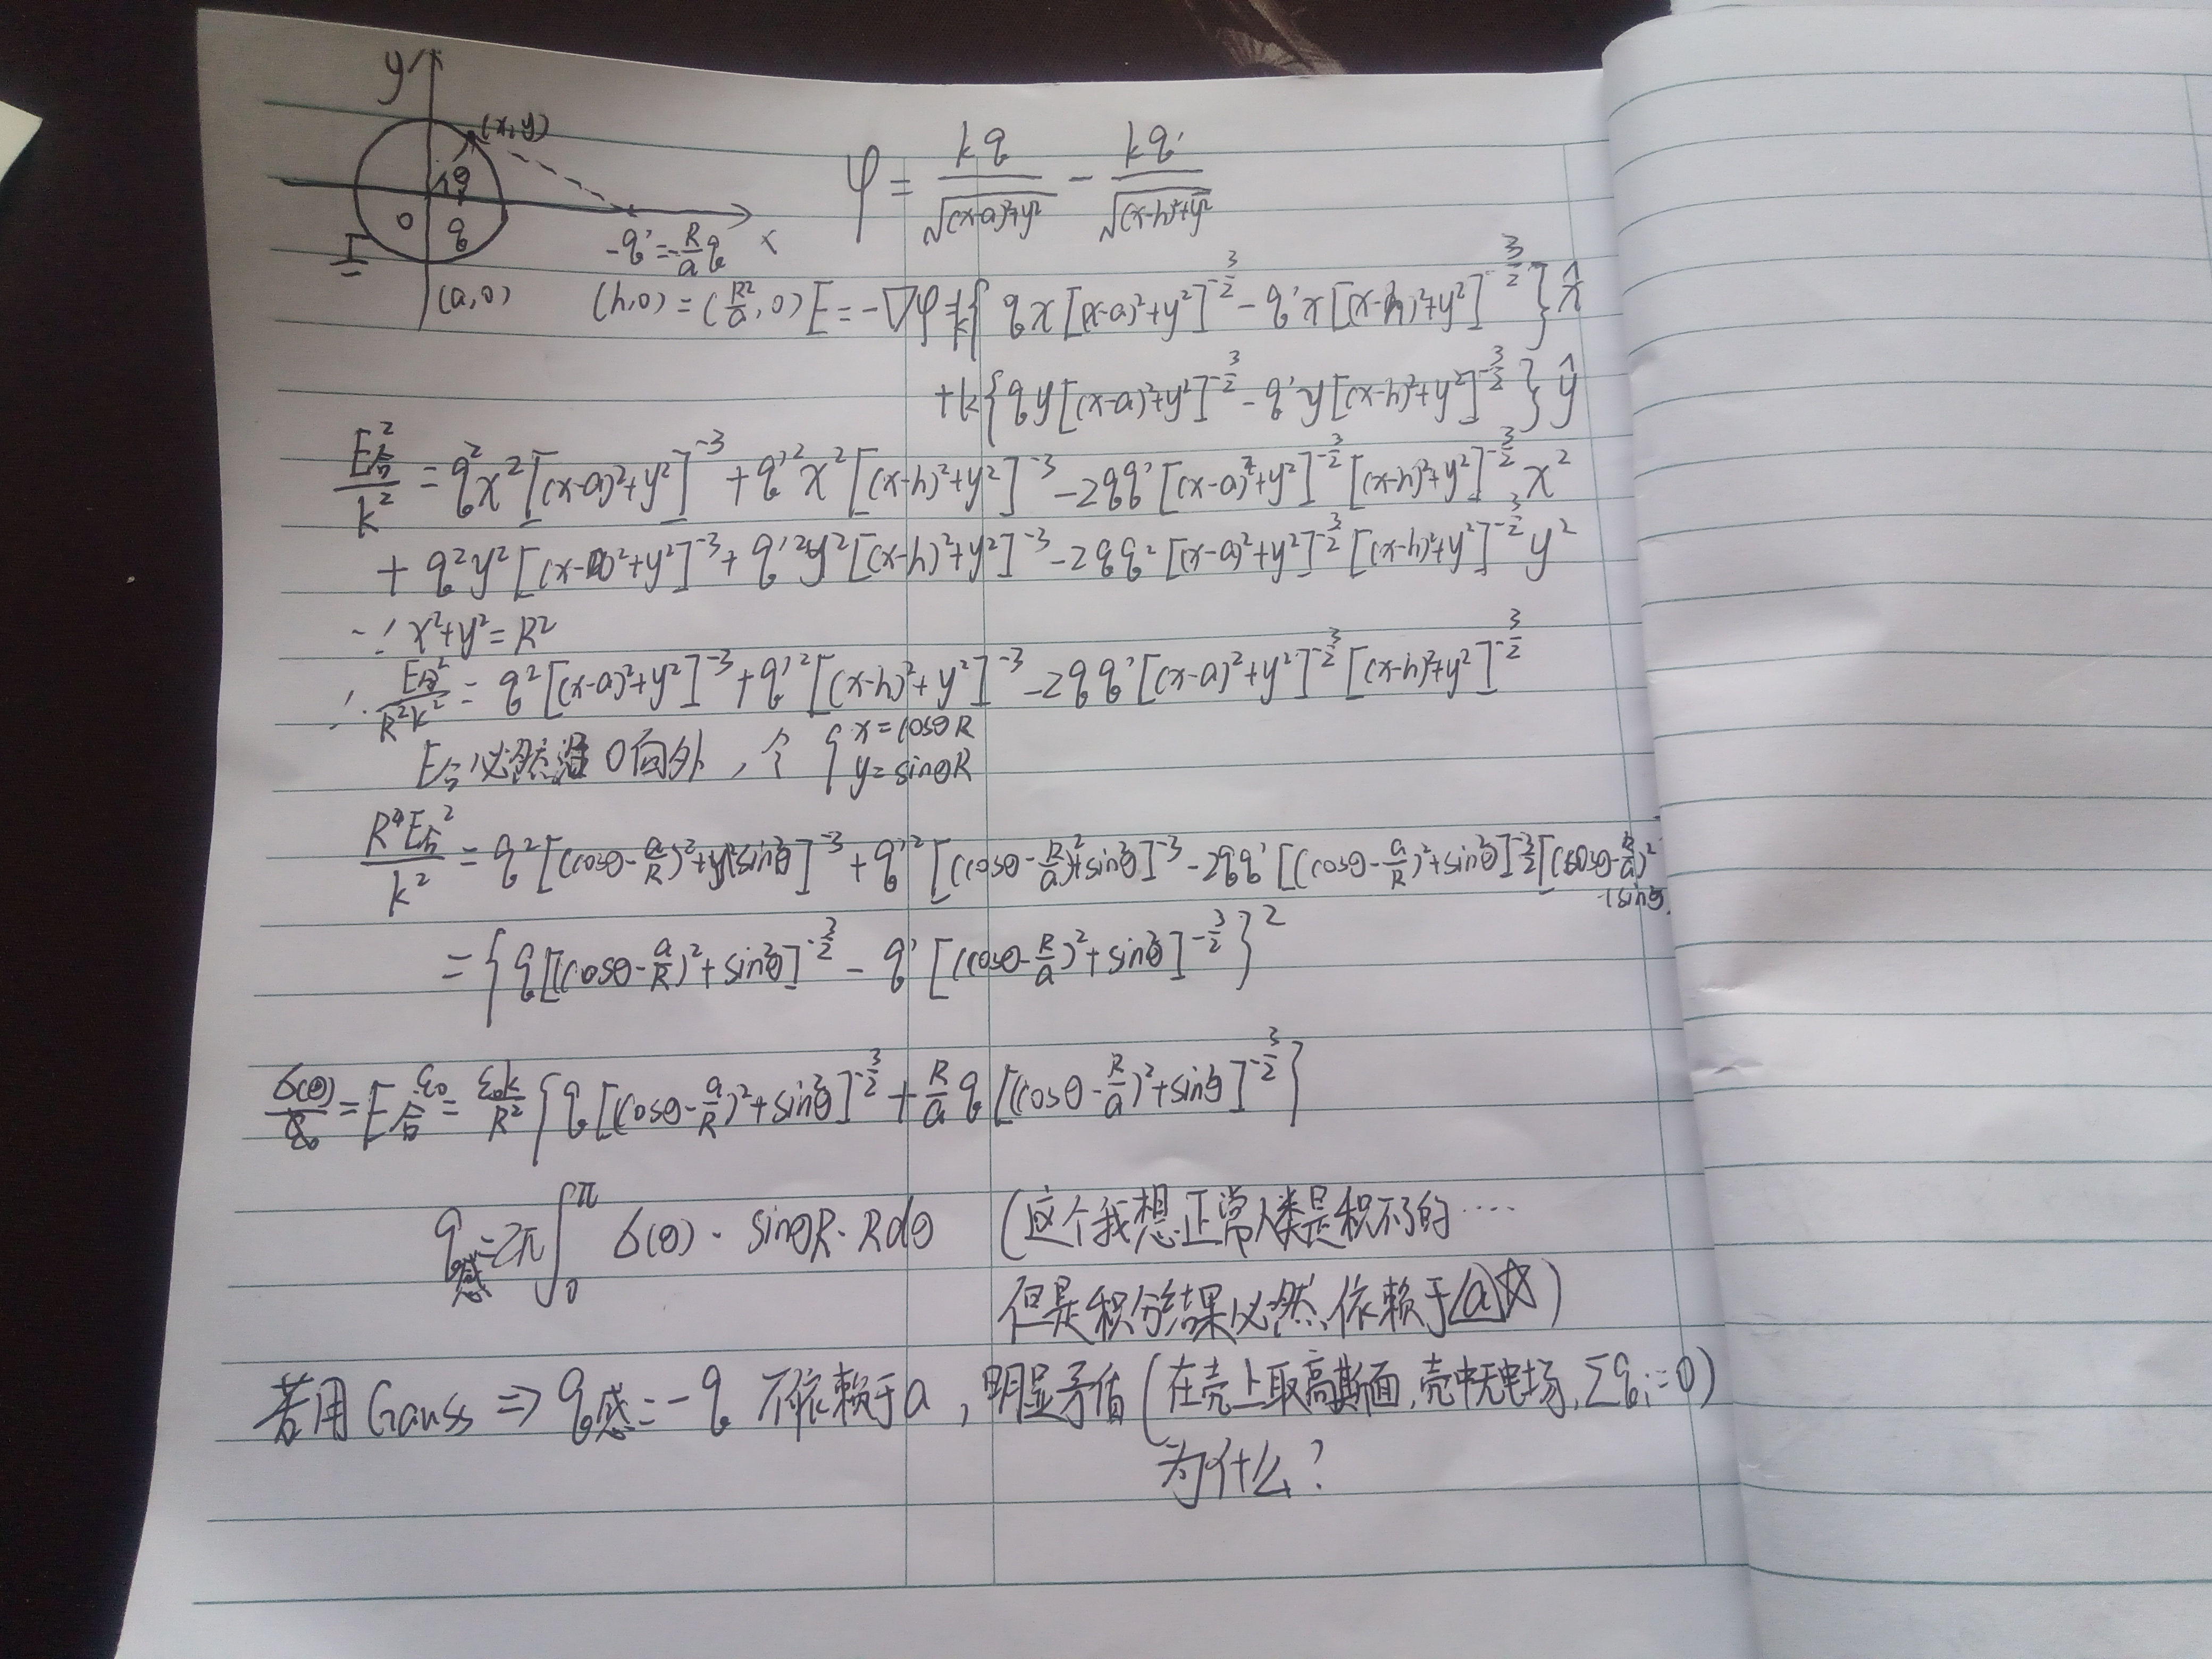 y
(x,y)
θ
O
q
x
-q'=-\frac{R}{a}q
(a,0)
(h,0)=(\frac{R²}{a},0)
φ = \frac{kq}{\sqrt{(x-a)²+y²}} - \frac{kq'}{\sqrt{(x-h)²+y²}}
E=-∇φ=k{ qx[(x-a)²+y²]^{-\frac{3}{2}} - q'x[(x-h)²+y²]^{-\frac{3}{2}} } \hat{x}
+k{ qy[(x-a)²+y²]^{-\frac{3}{2}} - q'y[(x-h)²+y²]^{-\frac{3}{2}} } \hat{y}
\frac{E合²}{k²} = q²x²[(x-a)²+y²]^{-3} + q'²x²[(x-h)²+y²]^{-3} - 2qq'[(x-a)²+y²]^{-\frac{3}{2}}[(x-h)²+y²]^{-\frac{3}{2}}x²
+ q²y²[(x-a)²+y²]^{-3} + q'²y²[(x-h)²+y²]^{-3} - 2qq²[(x-a)²+y²]^{-\frac{3}{2}}[(x-h)²+y²]^{-\frac{3}{2}}y²
∵ x²+y²=R²
∴ \frac{E合²}{R²k²} = q²[(x-a)²+y²]^{-3} + q'²[(x-h)²+y²]^{-3} - 2qq'[(x-a)²+y²]^{-\frac{3}{2}}[(x-h)²+y²]^{-\frac{3}{2}}
E合必然沿O向外，令 { x=cosθR
y=sinθR
\frac{R⁴E合²}{k²} = q²[(cosθ-\frac{a}{R})²+sin²θ]^{-3} + q'²[(cosθ-\frac{R}{a})²+sin²θ]^{-3} - 2qq'[(cosθ-\frac{a}{R})²+sin²θ]^{-\frac{3}{2}}[(cosθ-\frac{R}{a})²
+sinθ
= { q[(cosθ-\frac{a}{R})²+sin²θ]^{-\frac{3}{2}} - q'[(cosθ-\frac{R}{a})²+sin²θ]^{-\frac{3}{2}} }²
σ(θ) = E合ε₀ = \frac{ε₀k}{R²} { q[(cosθ-\frac{a}{R})²+sin²θ]^{-\frac{3}{2}} + \frac{R}{a}q[(cosθ-\frac{R}{a})²+sin²θ]^{-\frac{3}{2}} }
q感=2π∫_0^π σ(θ)·sinθR·Rdθ (这个我想正常人类是积不了的····
但是积分结果必然依赖于a☆)
若用Gauss ⇒ q感=-q 不依赖于a，明显矛盾(在壳上取高斯面，壳中无电场，Σqᵢ=0)
为什么？